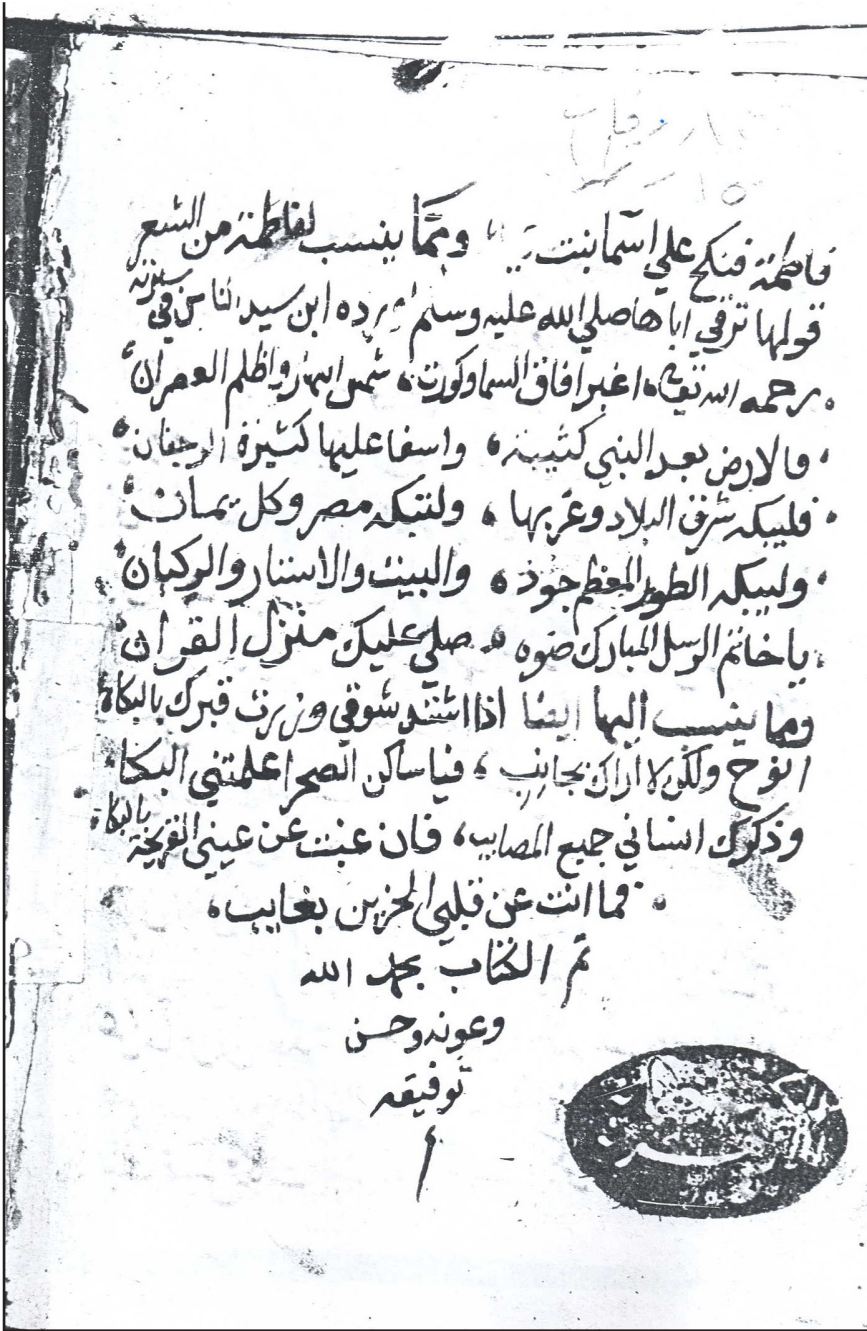 فاطمة فنكح علي اسما بنت ومما ينسب لفاطمة من الشعر
قولها ترثي اباها صلي الله عليه وسلم اورده ابن سيد الناس في سيرته
رحمه الله تعالى اغبر افاق السما وكورت شمس النهار واظلم العصران
فالارض بعد النبي كئيبة واسفا عليها كثيرة الرجفان
فليبكه شرق البلاد وغربها ولتبكه مصر وكل يمان
وليبكه الطور المعظم جوذه والبيت والاستار والركبان
يا خاتم الرسل المبارك ضوه صلي عليك منزل القران
ومما ينسب اليها ايضا اذا اشتد شوقي وزرت قبرك بالبكاء
انوح ولكن لا اراك بجانب فيا ساكن الصحرا علمتني البكا
وذكرك انساني جميع المصايب فان غبت عن عيني القريحة بالبكاء
فما انت عن قلبي الحزين بغايب
تم الكتاب بحمد الله
وعونه وحسن
توفيقه